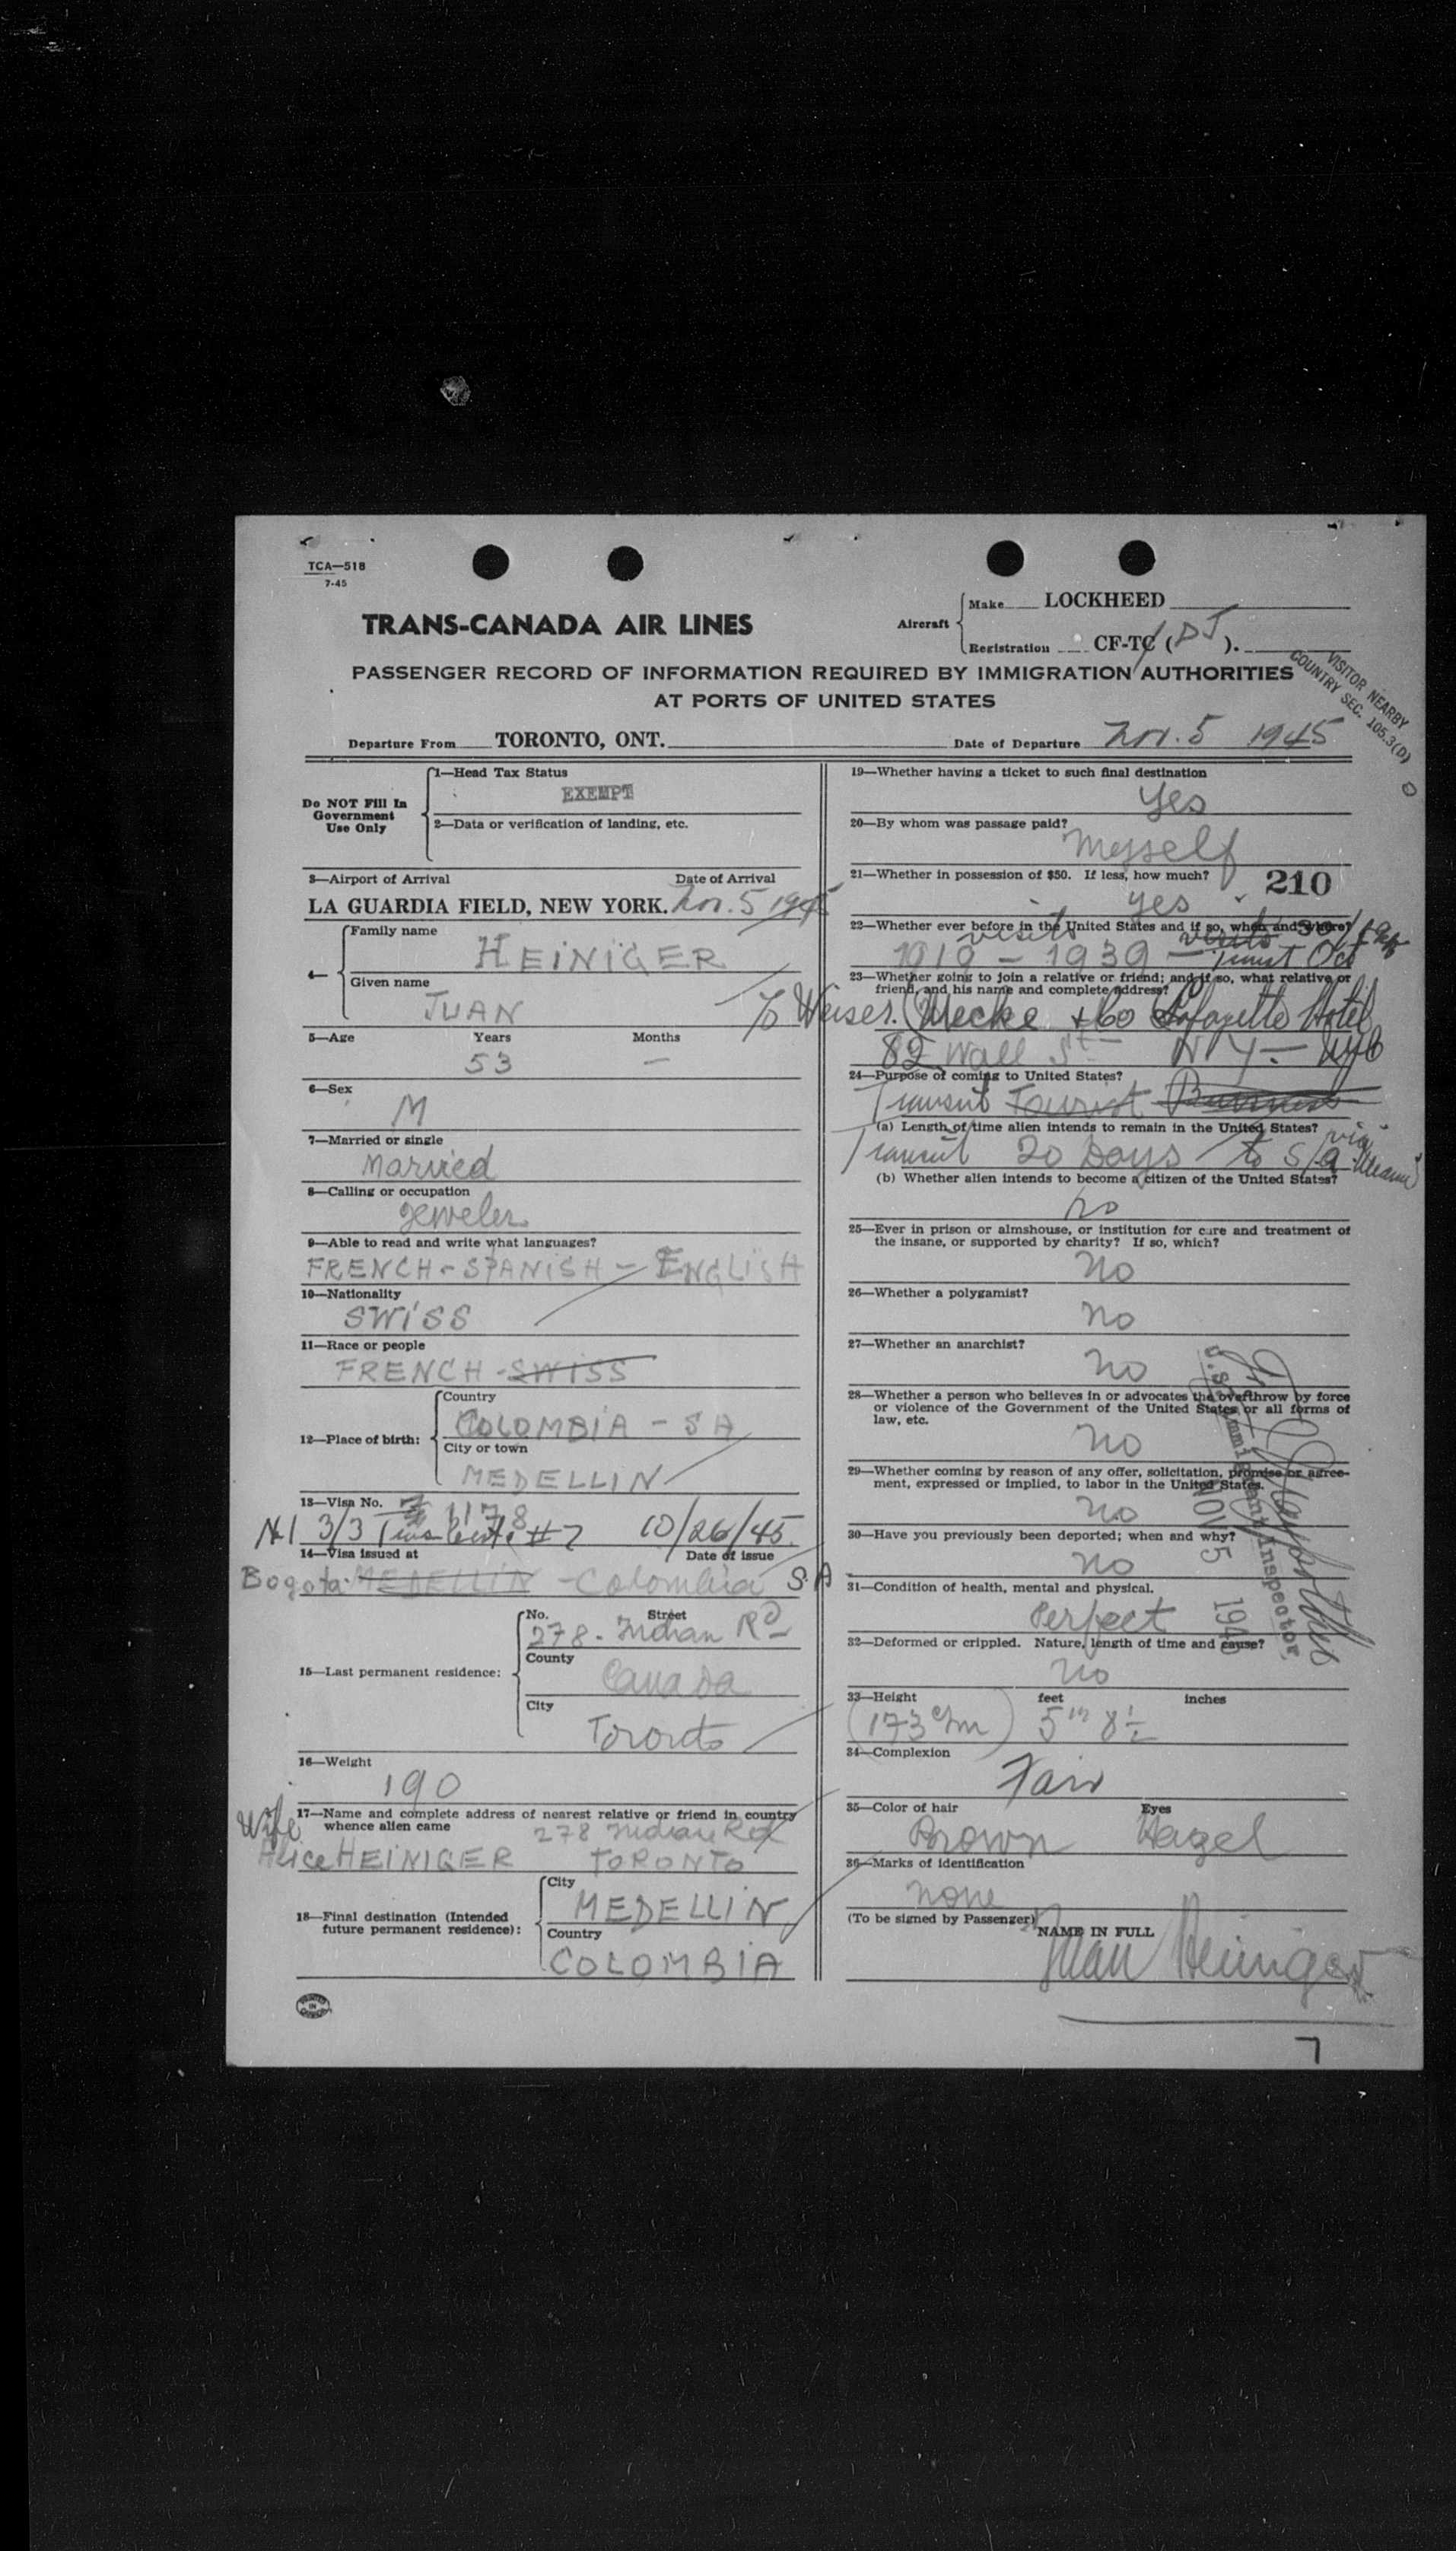 TCA—518
7-45
TRANS-CANADA AIR LINES
Aircraft
Make LOCKHEED
Registration CF-TC (DJ).
PASSENGER RECORD OF INFORMATION REQUIRED BY IMMIGRATION AUTHORITIES
AT PORTS OF UNITED STATES
VISITOR NEARBY
COUNTRY SEC. 105.3(D)
Departure From TORONTO, ONT.
Date of Departure Nov. 5 1945
Do NOT Fill In
Government
Use Only
1—Head Tax Status
EXEMPT
2—Data or verification of landing, etc.
3—Airport of Arrival Date of Arrival
LA GUARDIA FIELD, NEW YORK. Nov. 5 1945
4—
Family name
HEINIGER
Given name
JUAN
5—Age Years Months
53 —
6—Sex
M
7—Married or single
Married
8—Calling or occupation
Jeweler
9—Able to read and write what languages?
FRENCH - SPANISH - ENGLISH
10—Nationality
SWISS
11—Race or people
FRENCH - SWISS
12—Place of birth:
Country
COLOMBIA - SA
City or town
MEDELLIN
13—Visa No. 1178
3/3 #7 10/26/45
14—Visa issued at Date of issue
Bogota MEDELLIN - Colombia S.A
15—Last permanent residence:
No. Street
278 - Indian Rd
County
Canada
City
Toronto
16—Weight
190
17—Name and complete address of nearest relative or friend in country
whence alien came
Wife 278 Indian Rd
Alice HEINIGER TORONTO
18—Final destination (Intended
future permanent residence):
City
MEDELLIN
Country
COLOMBIA
19—Whether having a ticket to such final destination
Yes
20—By whom was passage paid?
Myself
21—Whether in possession of $50. If less, how much?
210
yes
22—Whether ever before in the United States and if so, when and where?
visits visits
1919 - 1939 - Transit Oct
23—Whether going to join a relative or friend; and if so, what relative or
friend, and his name and complete address?
Lafayette Hotel
82 Wall St N Y - NYC
24—Purpose of coming to United States?
Transit Tourist Business
(a) Length of time alien intends to remain in the United States?
Transit 20 Days to S/a via Miami
(b) Whether alien intends to become a citizen of the United States?
no
25—Ever in prison or almshouse, or institution for care and treatment of
the insane, or supported by charity? If so, which?
no
26—Whether a polygamist?
no
27—Whether an anarchist?
no
28—Whether a person who believes in or advocates the overthrow by force
or violence of the Government of the United States or all forms of
law, etc.
no
29—Whether coming by reason of any offer, solicitation, promise or agree-
ment, expressed or implied, to labor in the United States.
no
30—Have you previously been deported; when and why?
no
31—Condition of health, mental and physical.
Perfect
32—Deformed or crippled. Nature, length of time and cause?
no
33—Height feet inches
(173 c/m) 5 8 1/2
34—Complexion
Fair
35—Color of hair Eyes
Brown Hazel
36—Marks of identification
none
(To be signed by Passenger)
NAME IN FULL
Juan Heiniger
U.S. Immigrant Inspector
NOV 5 1945
PRINTED
IN
CANADA
7